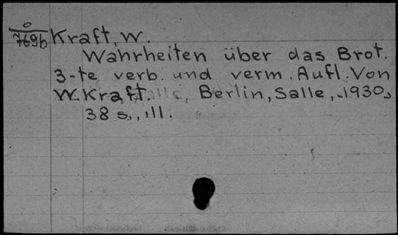 O
769b Kraft, W.
Wahrheiten über das Brot.
3-te verb. und verm. Aufl. Von
W. Kraft. Berlin, Salle, 1930,
38 s., ill.